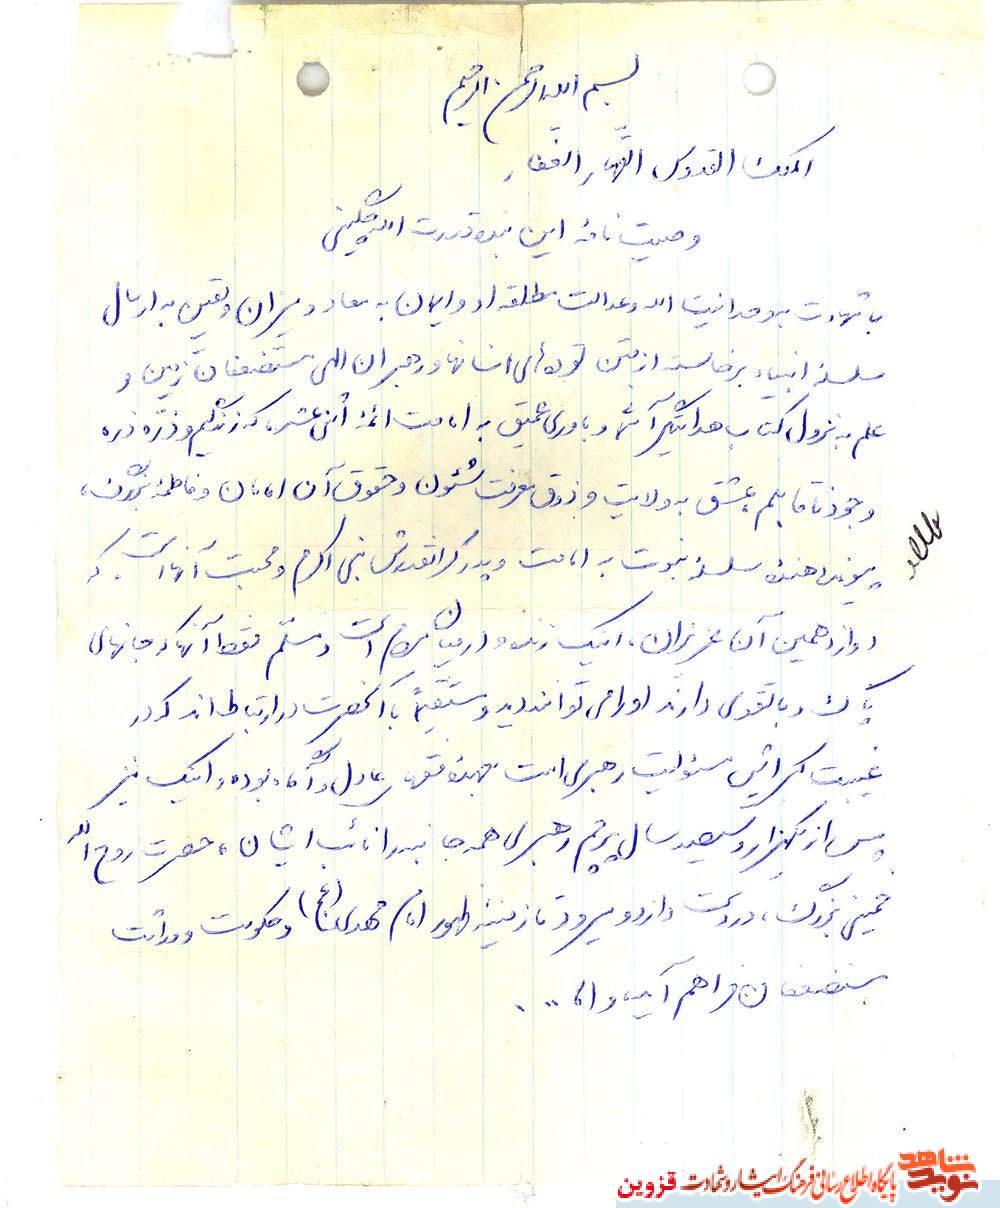 بسم الله الرحمن الرحیم
الملک القدوس القهار الغفار
وصیت نامه این بنده قدرت الله چگینی
با شهادت به وحدانیت الله و عدالت مطلقه او و ایمان به معاد و میزان و یقین به ارسال
سلسله انبیاء برخاسته از بتن توده‌های انسانها و رهبران الهی مستضعفان زمین و
علم به نزول کتاب هدایتگر آسمانی و باوری عمیق به امامت ائمهٔ اثنی عشر، که زندگیم و ذره ذره
وجود ناقابلم، عشق به ولایت و ذوق معرفت شئون و حقوق آن امامان و فاطمهٔ بزرگ،
پیونددهندهٔ سلسلهٔ نبوت به امامت و پدر گرانقدرش نبی اکرم و محبت آنها است که
دوازدهمین آن عزیزان، اینک زنده و در میان مردم است و مسلم فقط آنها که جانهای
پاک و با تقوی دارند او را می‌توانند دید و مستقیماً با آنحضرت در ارتباط‌اند که در
غیبت کبرایش مسئولیت رهبری امت بعهده فقهای عادل و آگاه بوده و اینک نیز
پس از یکهزار و سیصد سال پرچم رهبری همه جانبه را نائب ایشان، حضرت روح الله
خمینی بزرگ، در دست دارد و میرود تا زمینهٔ ظهور امام مهدی (عج) و حکومت وراثت
مستضعفان فراهم آید، و اما ...
شاهد
نوید
پایگاه اطلاع رسانی فرهنگ ایثار و شهادت قزوین